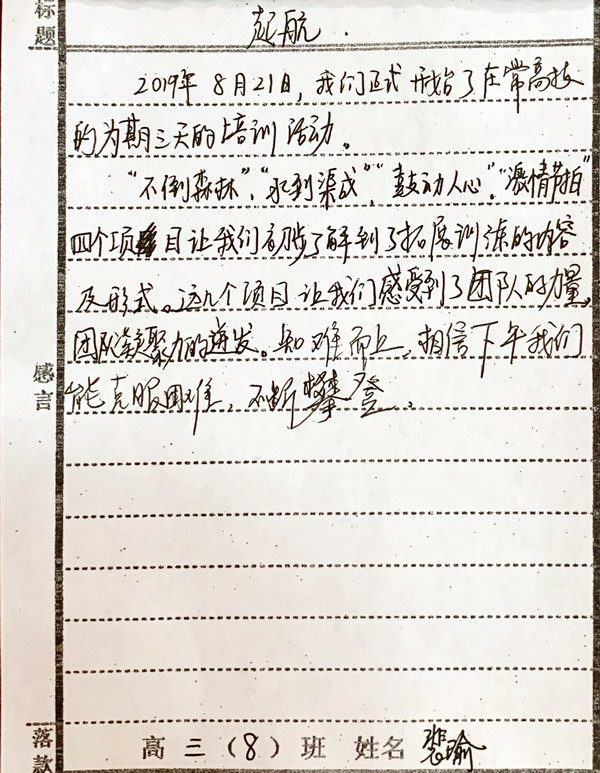 标题
起航.
2019年8月21日，我们正式开始了在常高技
的为期三天的培训活动。
“不倒森林”、“水到渠成”、“鼓动人心”、“激情节拍”
四个项目让我们初步了解到了拓展训练的内容
及形式。这几个项目让我们感受到了团队的力量，
团队凝聚力的迸发。知难而上，相信下午我们
能克服困难，不断攀登。
感言
落款
高三（8）班 姓名 裴瑜